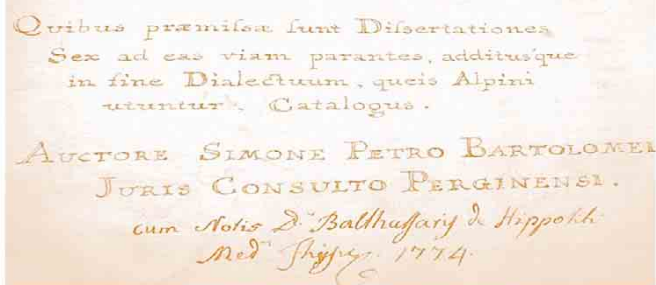 Quibus præmiſsæ ſunt Diſsertationes
Sex ad eas viam parantes, additusque
in fine Dialectuum, queis Alpini
utuntur, Catalogus.
Auctore Simone Petro Bartolomei
Juris Consulto Perginensi.
cum Notis D. Balthaſſaris de Hippolit.
Med. 1774.